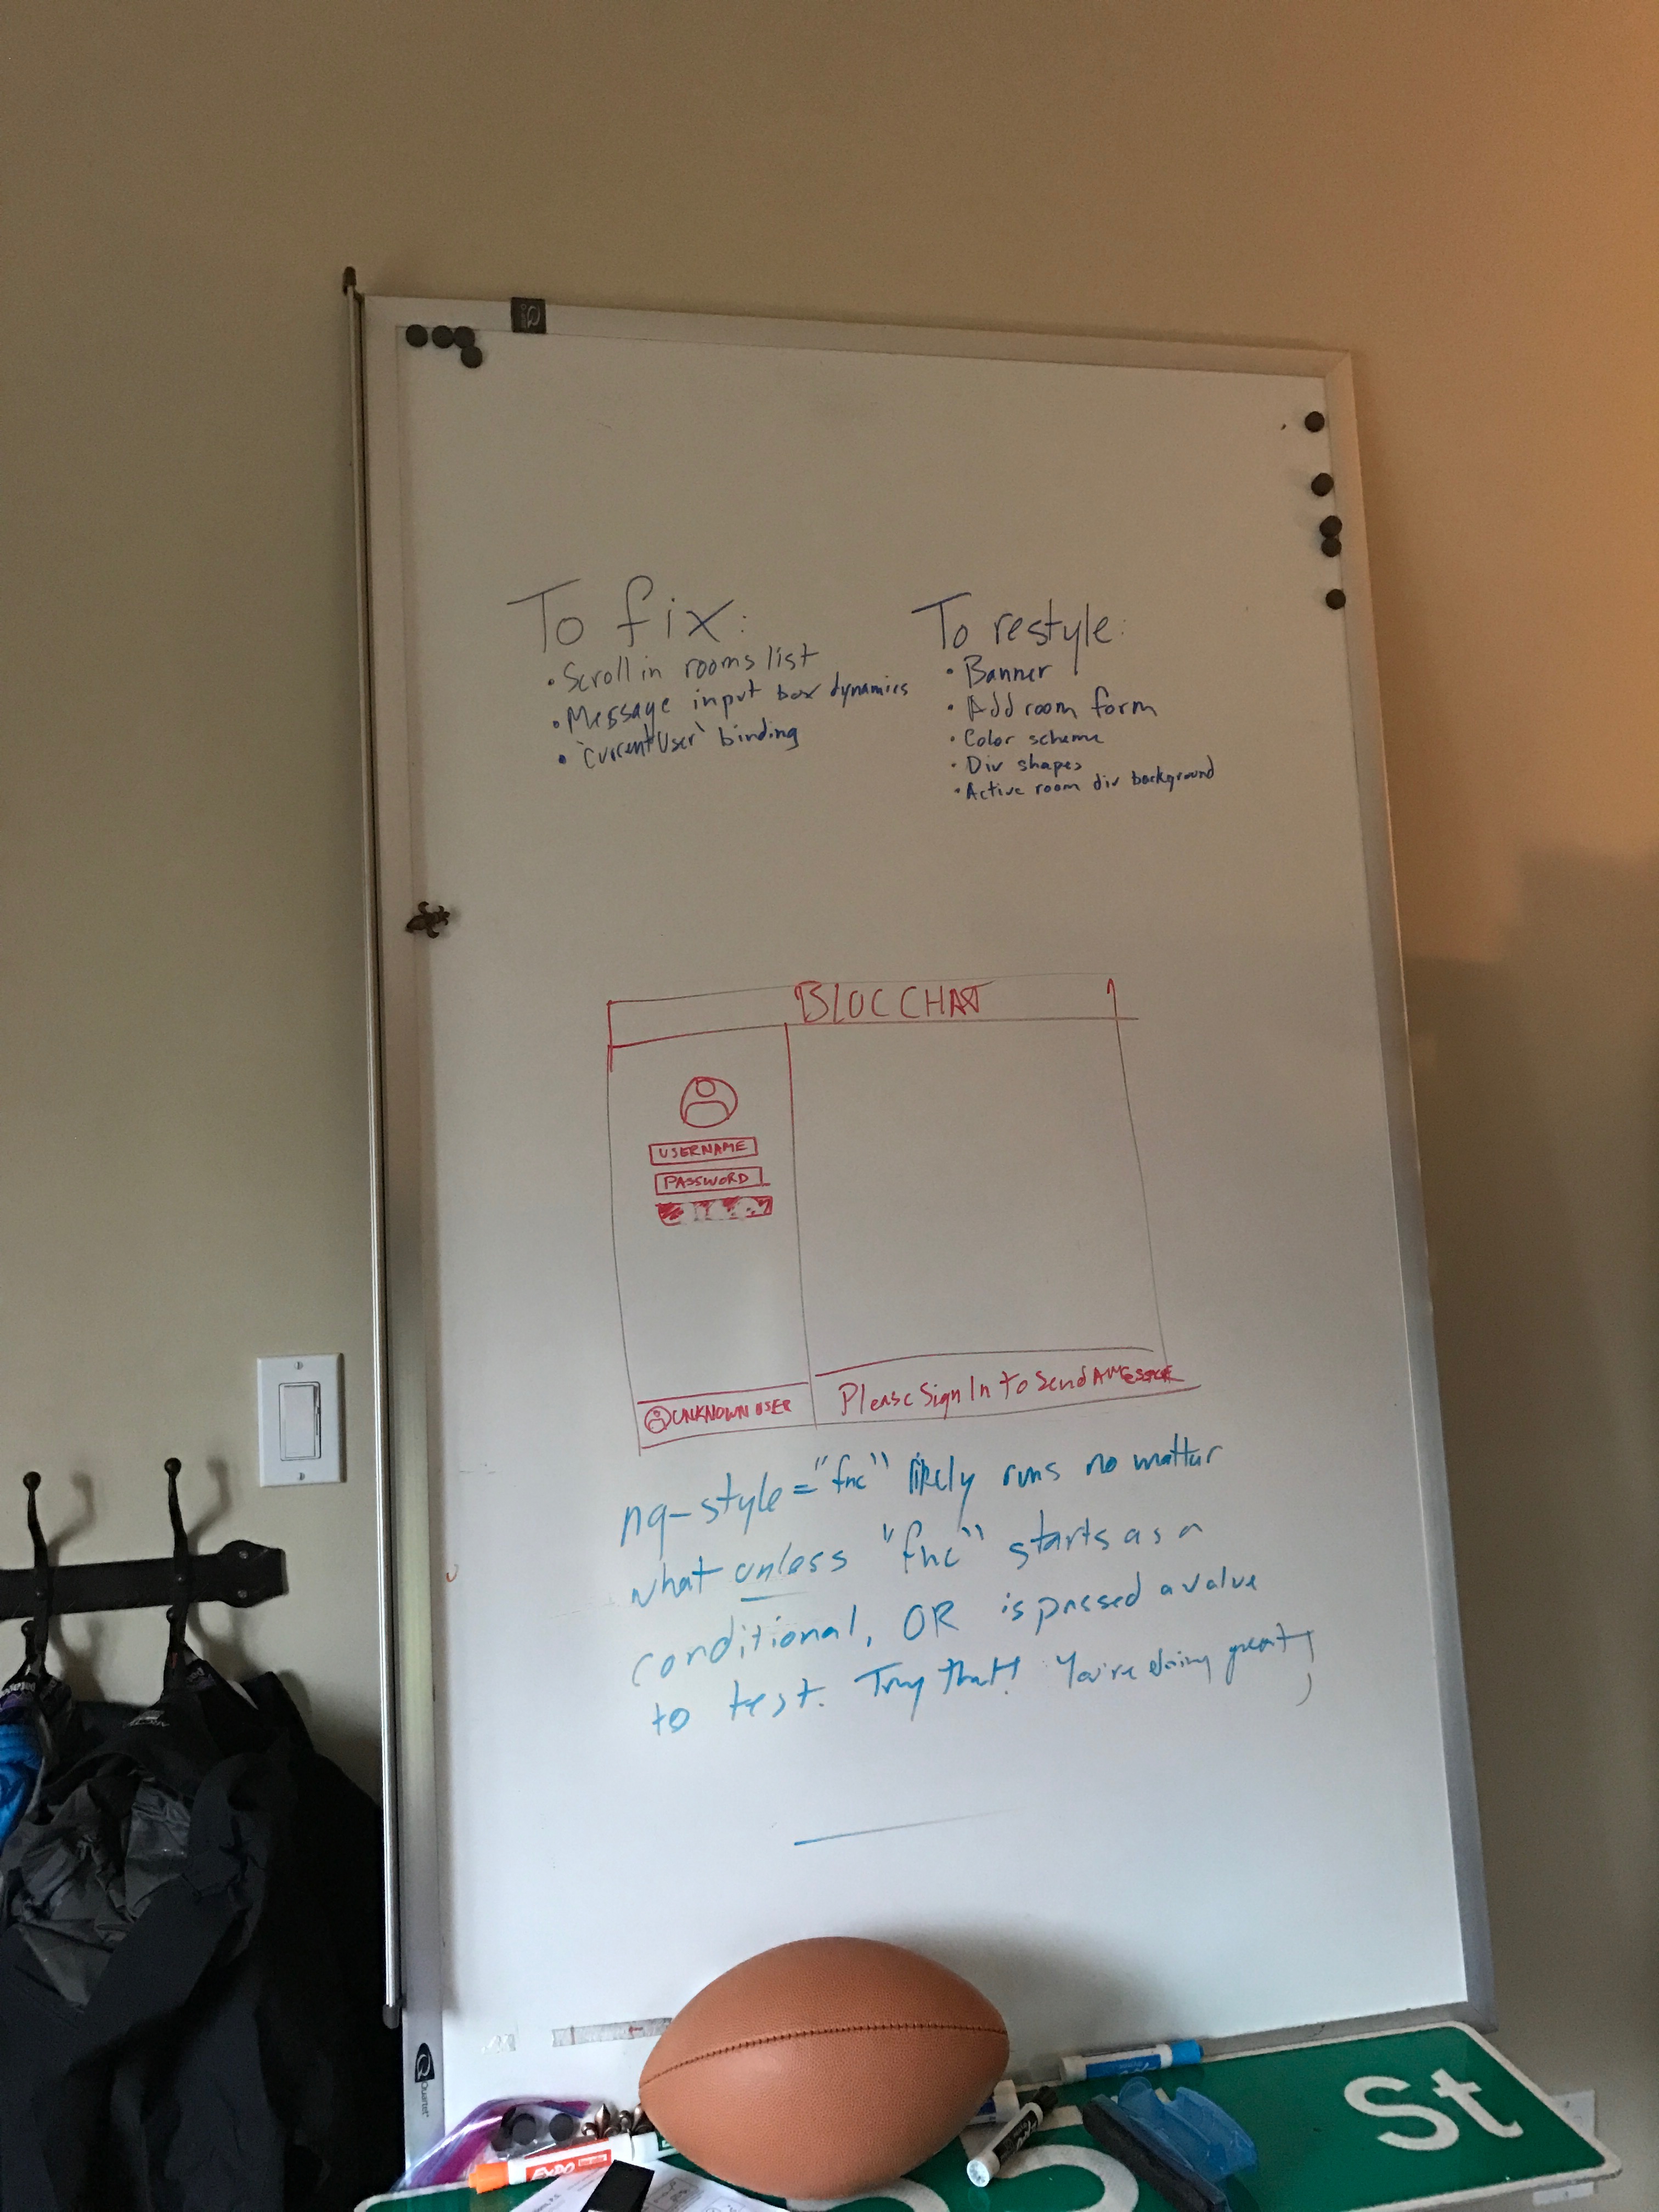 To fix:
• Scroll in rooms list
• Message input box dynamics
• `currentUser` binding
To restyle:
• Banner
• Add room form
• Color scheme
• Div shapes
• Active room div background
BLOC CHAT
USERNAME
PASSWORD
UNKNOWN USER
Please Sign In to Send A MESSAGE
ng-style="fnc" likely runs no matter
what unless "fnc" starts as a
conditional, OR is passed a value
to test. Try that! You're doing great!
Quartet
EXPO
St